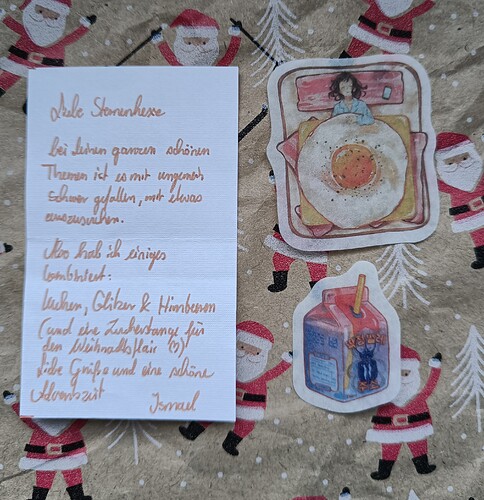 Liebe Sternenhexe
bei deinen ganzen schönen
Themen ist es mir ungemein
schwer gefallen, mir etwas
auszusuchen.
Also hab ich einiges
kombiniert:
Kuchen, Glitzer & Himbeeren
(und eine Zuckerstange für
den Weihnachtsflair ♡)
Liebe Grüße und eine schöne
Adventszeit
Ismael